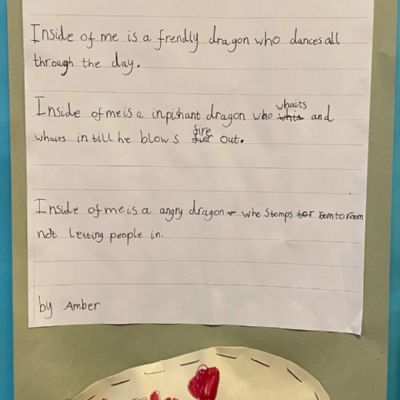 Inside of me is a frendly dragon who dances all
through the day.
Inside of me is a inpishant dragon who whaits and
whaits in till he blows fire out.
Inside of me is a angry dragon who stomps rom to room
not letting people in.
by Amber